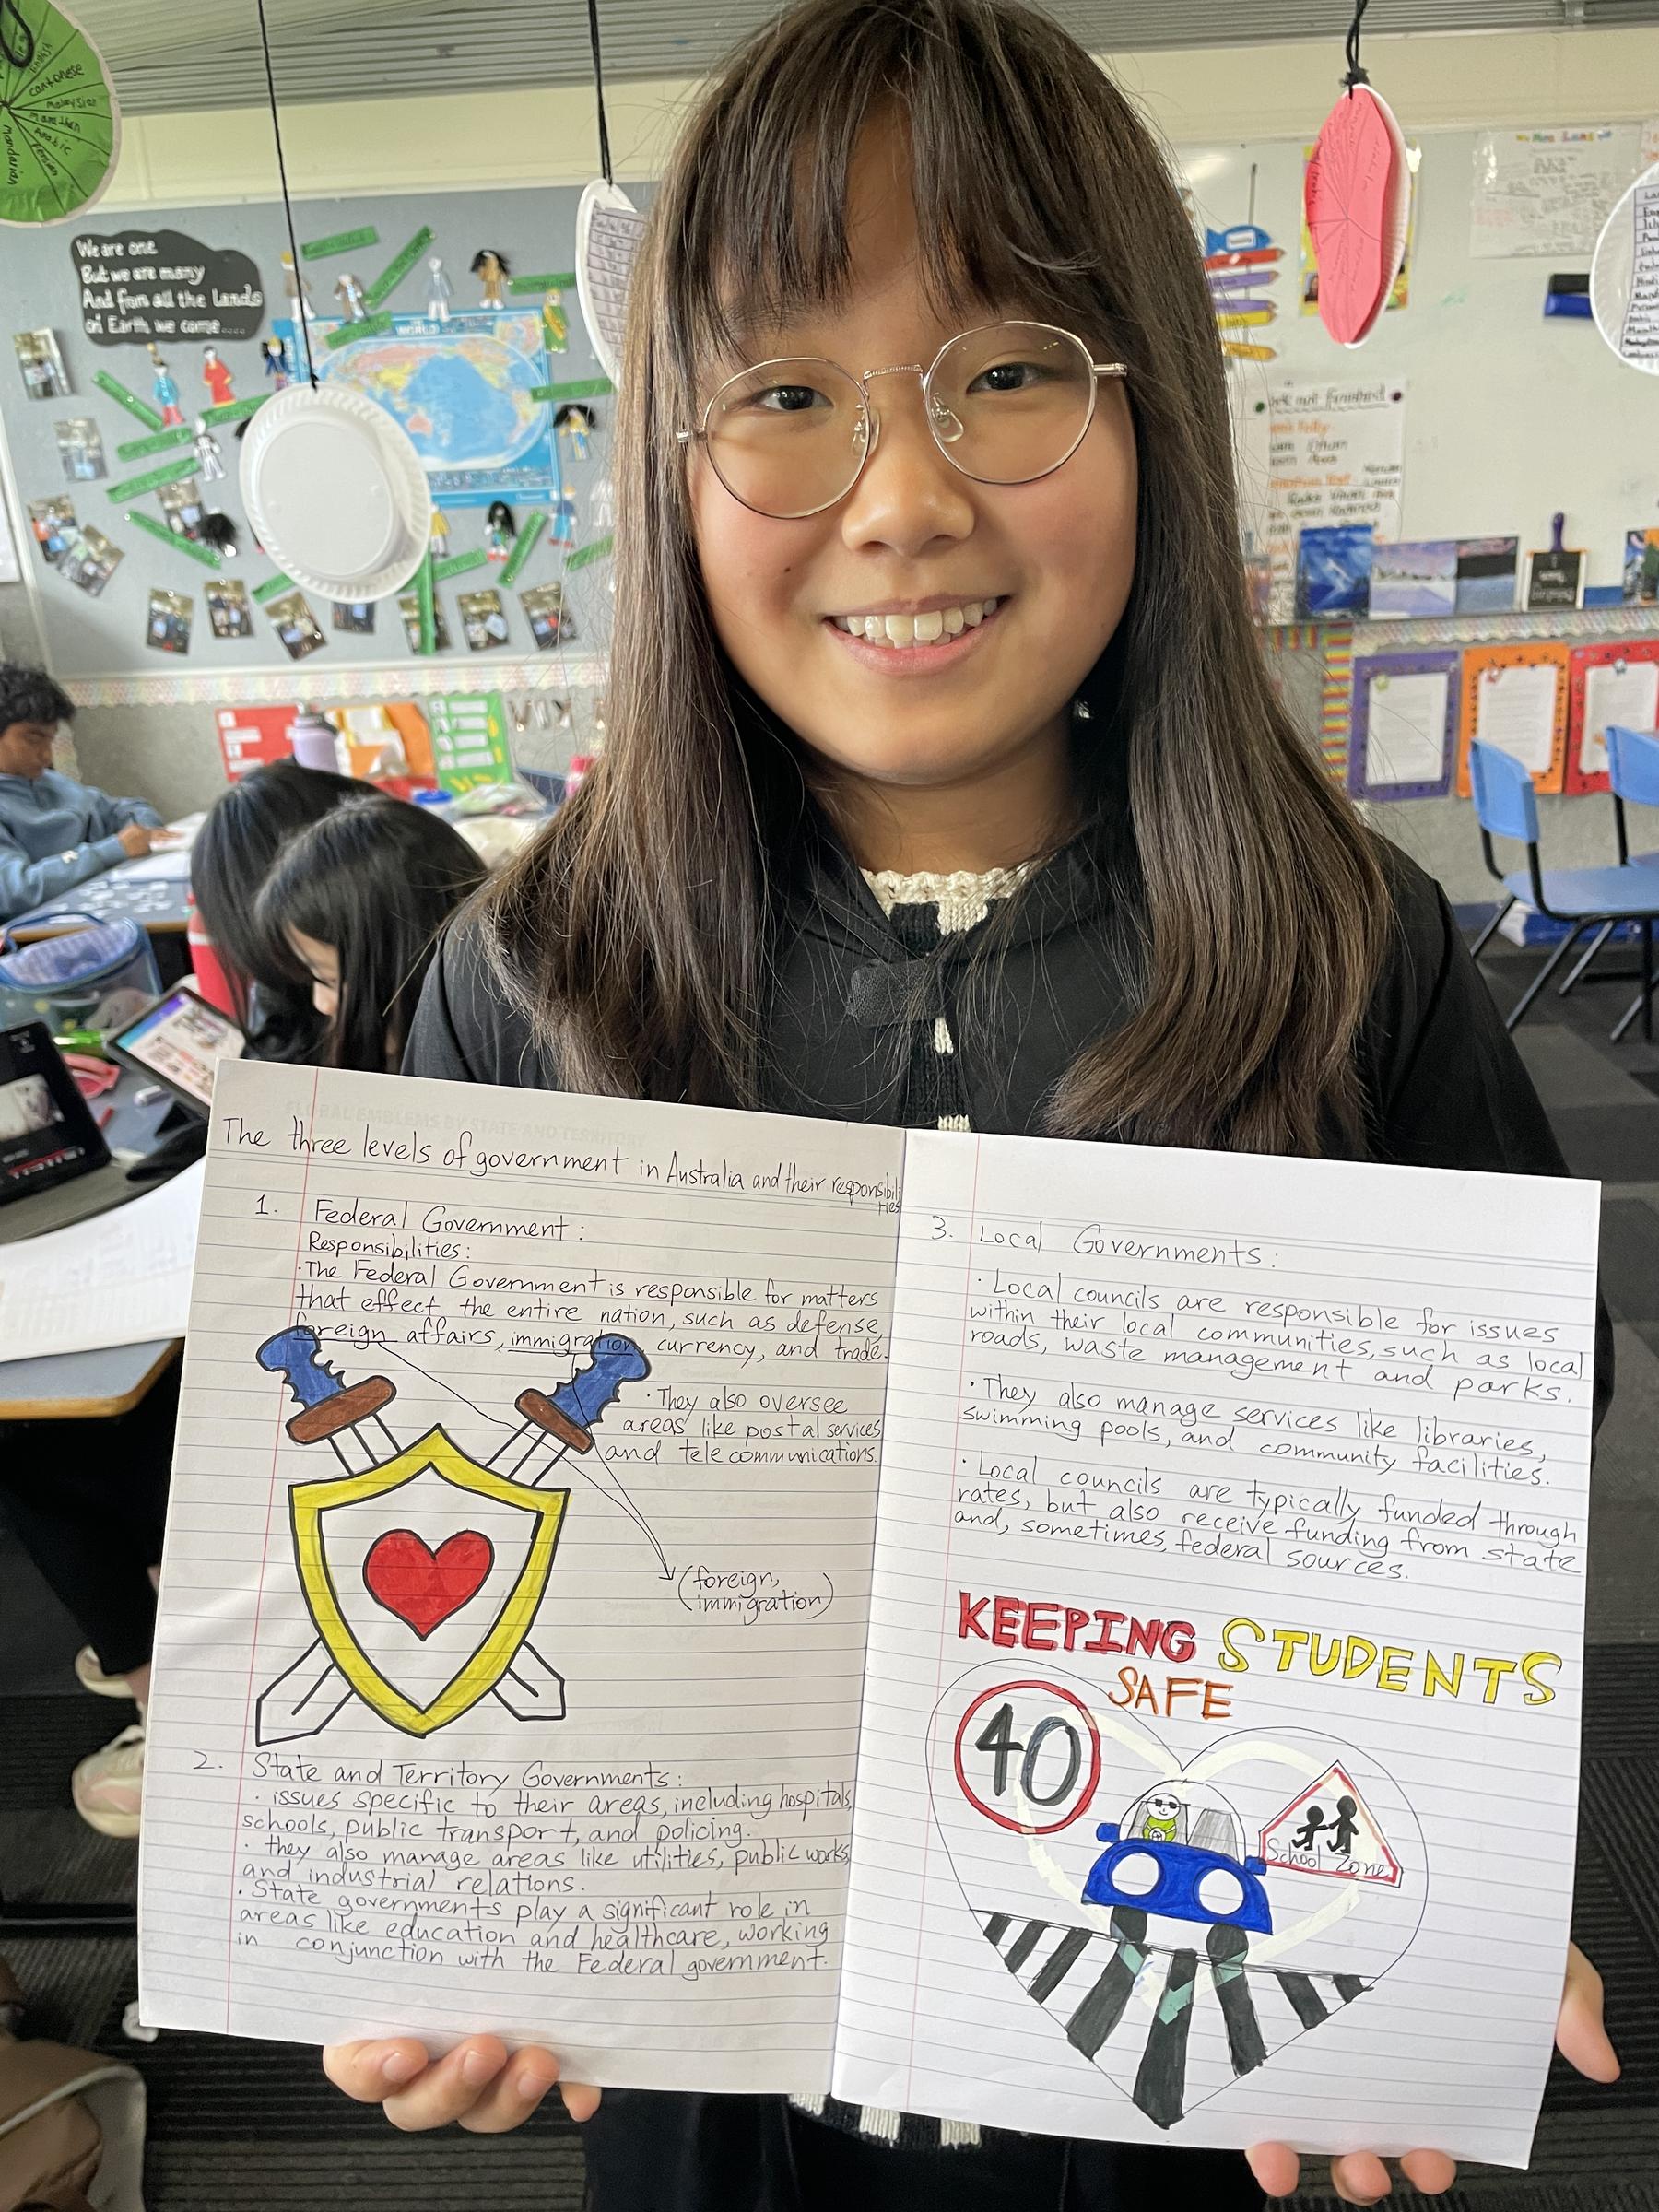 English
cantonese
malaysian
marathon
Arabic
mandarin
We are one
But we are many
And from all the Lands
on Earth we come....
WORLD
FLORAL EMBLEMS BY STATE AND TERRITORY
The three levels of government in Australia and their responsibili
ties
1. Federal Government:
Responsibilities:
·The Federal Government is responsible for matters
that effect the entire nation, such as defense,
foreign affairs, immigration, currency, and trade.
·They also oversee
areas like postal services
and telecommunications.
(foreign,
immigration)
2. State and Territory Governments:
· issues specific to their areas, including hospitals,
schools, public transport, and policing.
· they also manage areas like utilities, public works,
and industrial relations.
·State governments play a significant role in
areas like education and healthcare, working
in conjunction with the Federal government.
3. Local Governments:
·Local councils are responsible for issues
within their local communities, such as local
roads, waste management and parks.
·They also manage services like libraries,
swimming pools, and community facilities.
·Local councils are typically funded through
rates, but also receive funding from state
and, sometimes, federal sources.
KEEPING STUDENTS
SAFE
40
School Zone